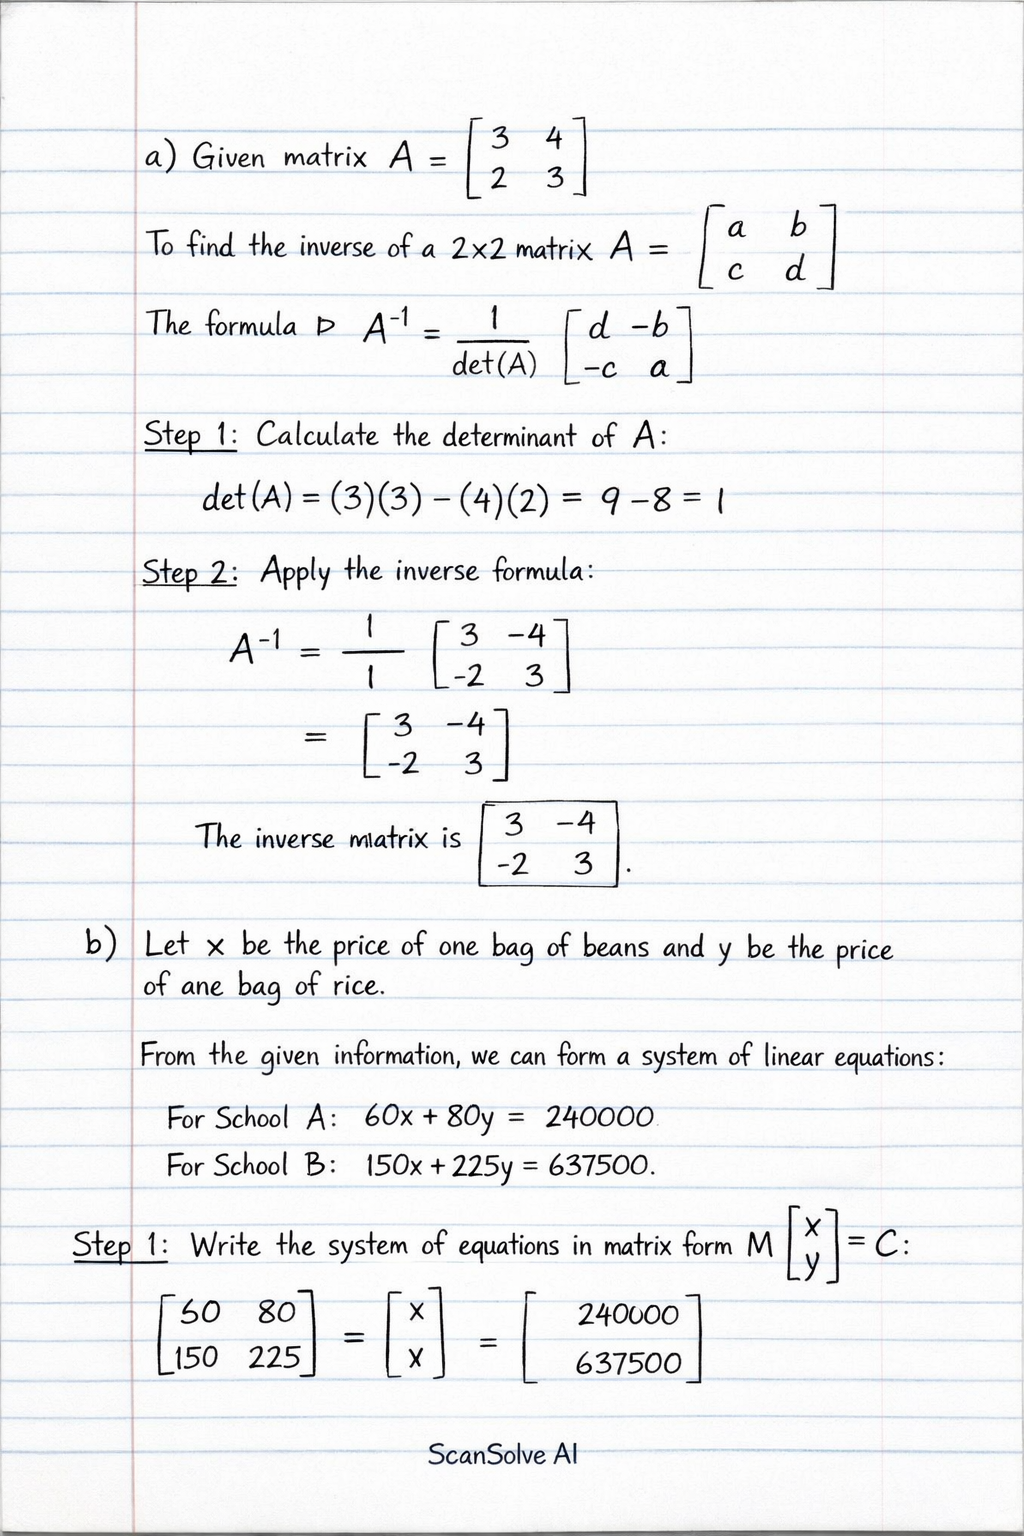 a) Given matrix A = [ 3 4
2 3 ]
To find the inverse of a 2x2 matrix A = [ a b
c d ]
The formula ▷ A⁻¹ = 1/det(A) [ d -b
-c a ]
Step 1: Calculate the determinant of A:
det(A) = (3)(3) - (4)(2) = 9 - 8 = 1
Step 2: Apply the inverse formula:
A⁻¹ = 1/1 [ 3 -4
-2 3 ]
= [ 3 -4
-2 3 ]
The inverse matrix is [ 3 -4
-2 3 ].
b) Let x be the price of one bag of beans and y be the price
of ane bag of rice.
From the given information, we can form a system of linear equations:
For School A: 60x + 80y = 240000
For School B: 150x + 225y = 637500.
Step 1: Write the system of equations in matrix form M [ x
y ] = C:
[ 60 80
150 225 ] = [ x
x ] = [ 240000
637500 ]
ScanSolve AI